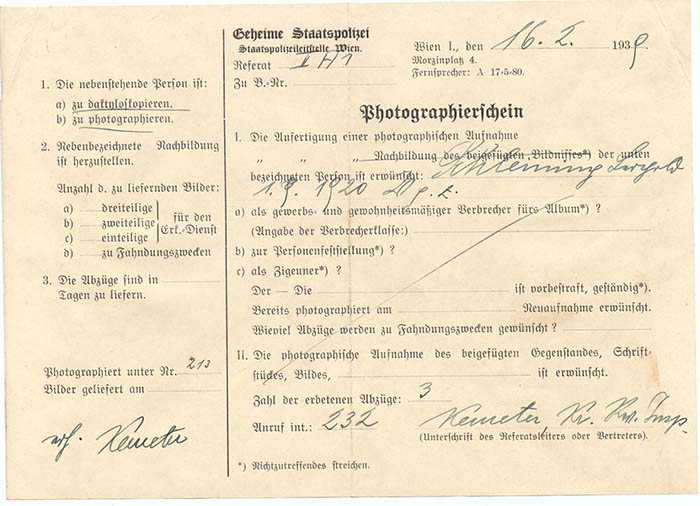 1. Die nebenstehende Person ist:
a) zu daktyloskopieren.
b) zu photographieren.
2. Nebenbezeichnete Nachbildung
ist herzustellen.
Anzahl d. zu liefernden Bilder:
a) dreiteilige
b) zweiteilige
c) einteilige
für den
Erk.-Dienst
d) zu Fahndungszwecken
3. Die Abzüge sind in
Tagen zu liefern.
Photographiert unter Nr. 213
Bilder geliefert am
Kemeter
Geheime Staatspolizei
Staatspolizeileitstelle Wien.
Referat II H 1
Zu B.-Nr.
Wien I., den 16. 2. 1939.
Morzinplatz 4.
Fernsprecher: A 17-5-80.
Photographierschein
I. Die Anfertigung einer photographischen Aufnahme
" " " Nachbildung des beigefügten „Bildnisses*) der unten
bezeichneten Person ist erwünscht: Leopold
1. 9. 1920
a) als gewerbs- und gewohnheitsmäßiger Verbrecher fürs Album*) ?
(Angabe der Verbrecherklasse:)
b) zur Personenfeststellung*) ?
c) als Zigeuner*) ?
Der — Die ist vorbestraft, geständig*).
Bereits photographiert am Neuaufnahme erwünscht.
Wieviel Abzüge werden zu Fahndungszwecken gewünscht ?
II. Die photographische Aufnahme des beigefügten Gegenstandes, Schrift-
stückes, Bildes, ist erwünscht.
Zahl der erbetenen Abzüge: 3
Anruf int.: 232 Kemeter, Kr.
(Unterschrift des Referatsleiters oder Vertreters).
*) Nichtzutreffendes streichen.